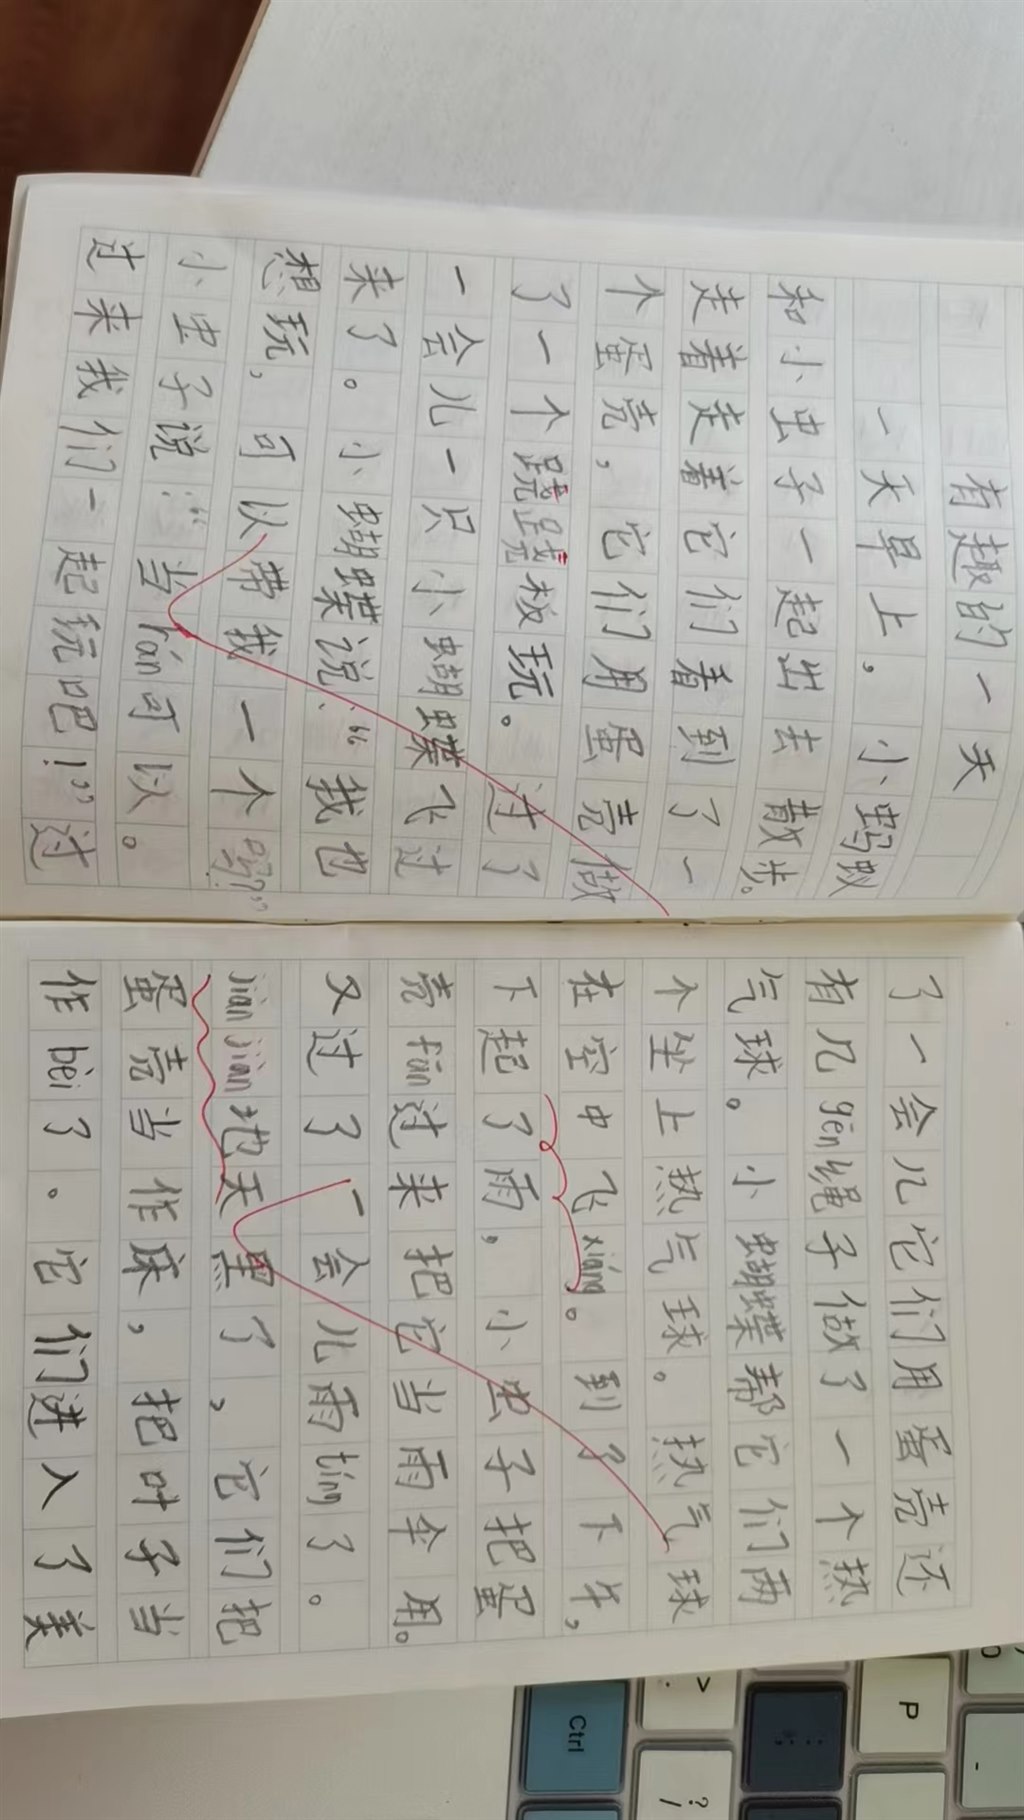 有趣的一天
一天早上，小蚂蚁
和小虫子一起出去散步。
走着走着它们看到了一
个蛋壳，它们用蛋壳做
了一个跷跷板玩。过了
一会儿一只小蝴蝶飞过
来了。小蝴蝶说：“我也
想玩，可以带我一个吗？”
小虫子说：“当rán可以。
过来我们一起玩吧！”过
了一会儿它们用蛋壳还
有几gēn绳子做了一个热
气球。小蝴蝶帮它们两
个坐上热气球。热气球
在空中飞xiáng。到了下午，
下起了雨，小虫子把蛋
壳fān过来把它当雨伞用。
又过了一会儿雨tíng了。
jiàn jiàn地天黑了，它们把
蛋壳当作床，把叶子当
作bèi了。它们进入了美
Ctrl
P